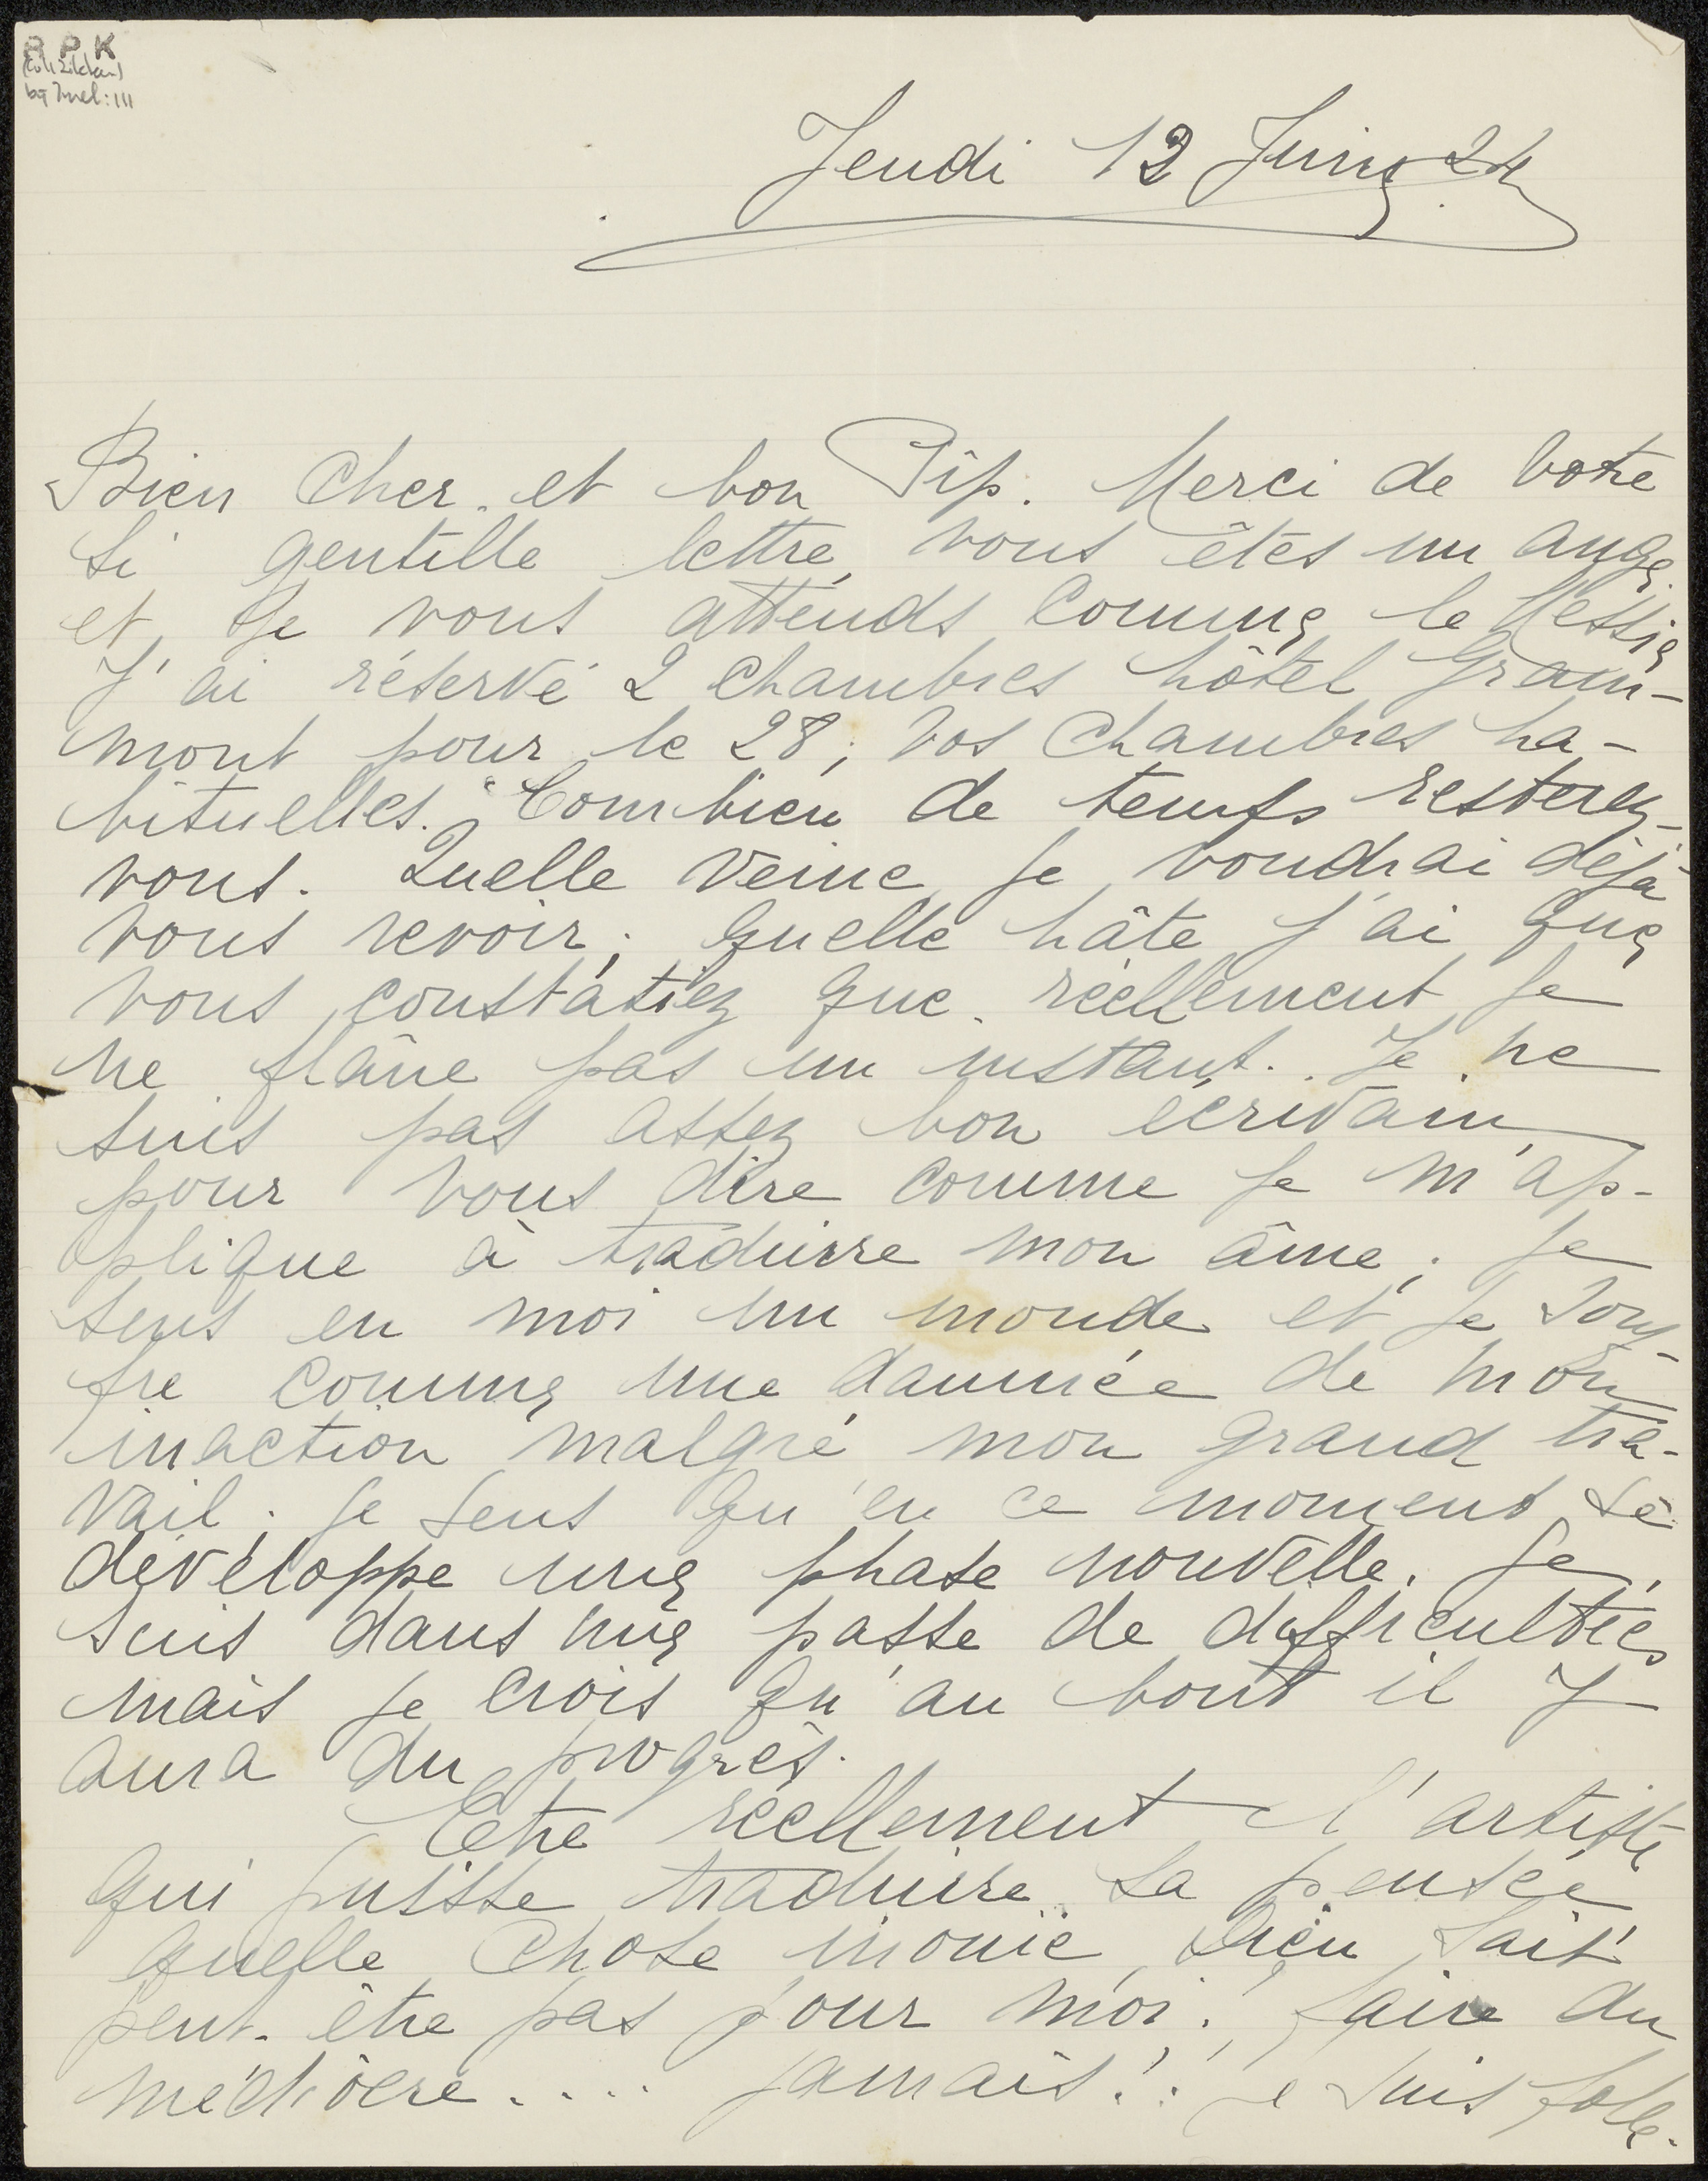 R P K
Jeudi 12 Juin 24
Bien cher et bon Pip. Merci de votre
si gentille lettre, vous êtes un ange
et je vous attends comme le Messie
J'ai réservé 2 chambres hôtel Gram-
mont pour le 28, vos chambres ha-
bituelles. Combien de temps resterez-
vous. Quelle veine, je voudrai déjà
vous revoir; quelle hâte j'ai que
vous constatiez que réellement je
ne flâne pas un instant. Je ne
suis pas assez bon écrivain
pour vous dire comme je m'ap-
plique à traduire mon âme; je
sens en moi un monde et je souf-
fre comme une damnée de mon
inaction malgré mon grand tra-
vail. je sens qu'en ce moment se
développe une phase nouvelle. je
suis dans une passe de difficultées
mais je crois qu'au bout il y
aura du progrès.
Etre réellement l'artiste
qui puisse traduire sa pensée
quelle chose inouïe, Dieu sait
peut-être pas pour moi! faire du
médiocre.... jamais!! je suis folle.